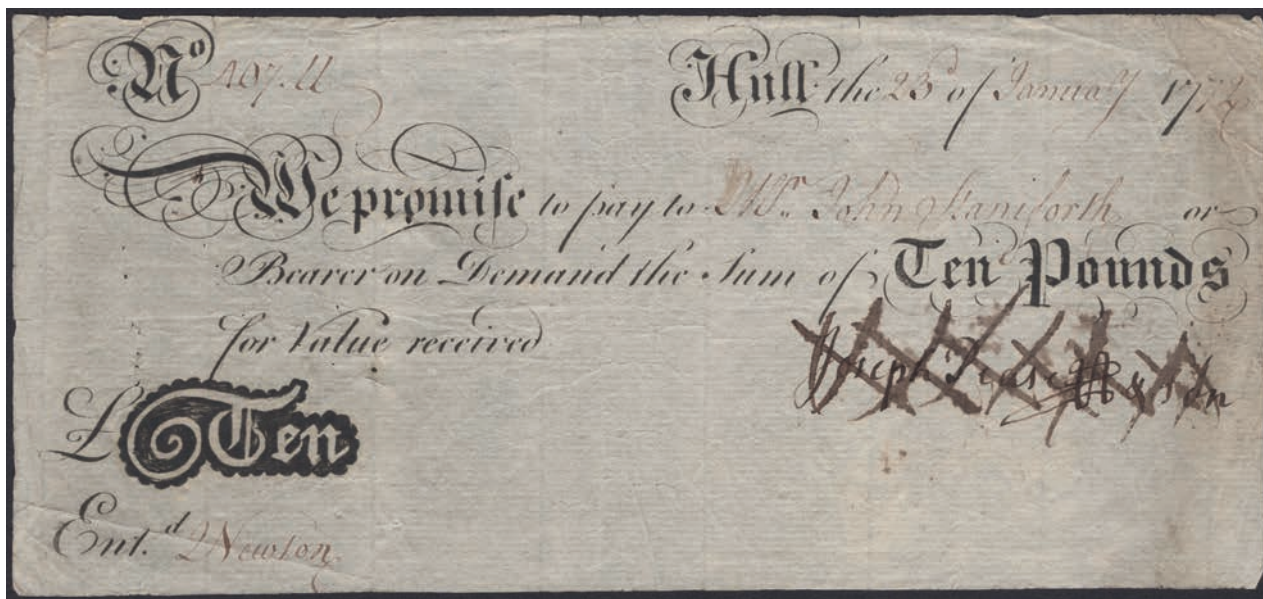 No A07.U Hull the 23d of January 177
We promise to pay to Mr. John Staniforth or
Bearer on Demand the Sum of Ten Pounds
for Value received
Joseph Pease & Son
£ Ten
Ent.d Newton